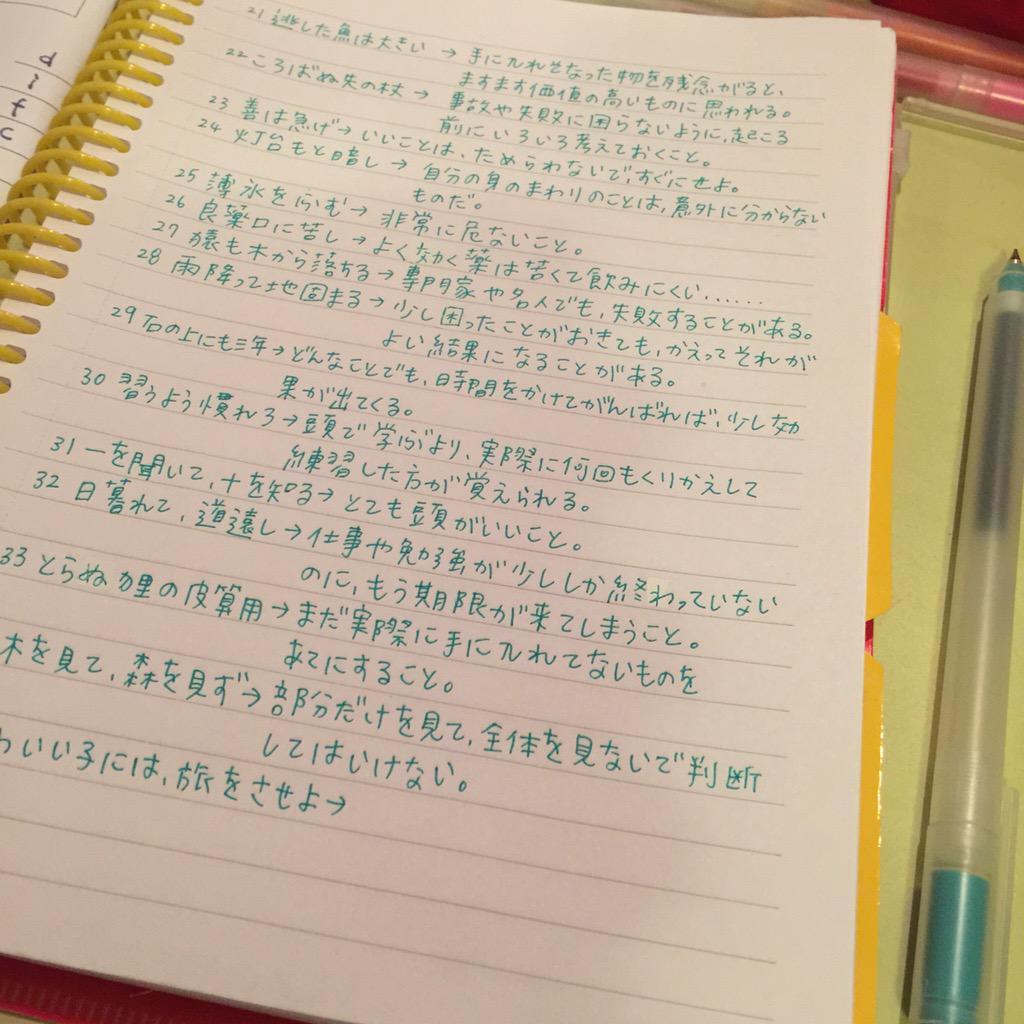 d
i
f
c
21 逃した魚は大きい → 手に入れそなった物を残念がると、
ますます価値の高いものに思われる。
22 ころばぬ先の杖 → 事故や失敗に困らないように、起こる
前にいろいろ考えておくこと。
23 善は急げ → いいことは、ためらわないで、すぐにせよ。
24 灯台もと暗し → 自分の身のまわりのことは、意外に分からない
ものだ。
25 薄氷をふむ → 非常に危ないこと。
26 良薬口に苦し → よく効く薬は苦くて飲みにくい……
27 猿も木から落ちる → 専門家や名人でも、失敗することがある。
28 雨降って地固まる → 少し困ったことがおきても、かえってそれが
よい結果になることがある。
29 石の上にも三年 → どんなことでも、時間をかけてがんばれば、少し効
果が出てくる。
30 習うよう慣れろ → 頭で学ぶより、実際に何回もくりかえして
練習した方が覚えられる。
31 一を聞いて、十を知る → とても頭がいいこと。
32 日暮れて、道遠し → 仕事や勉強が少ししか終わっていない
のに、もう期限が来てしまうこと。
33 とらぬ狸の皮算用 → まだ実際に手に入れてないものを
あてにすること。
木を見て、森を見ず → 部分だけを見て、全体を見ないで判断
してはいけない。
わいい子には、旅をさせよ →